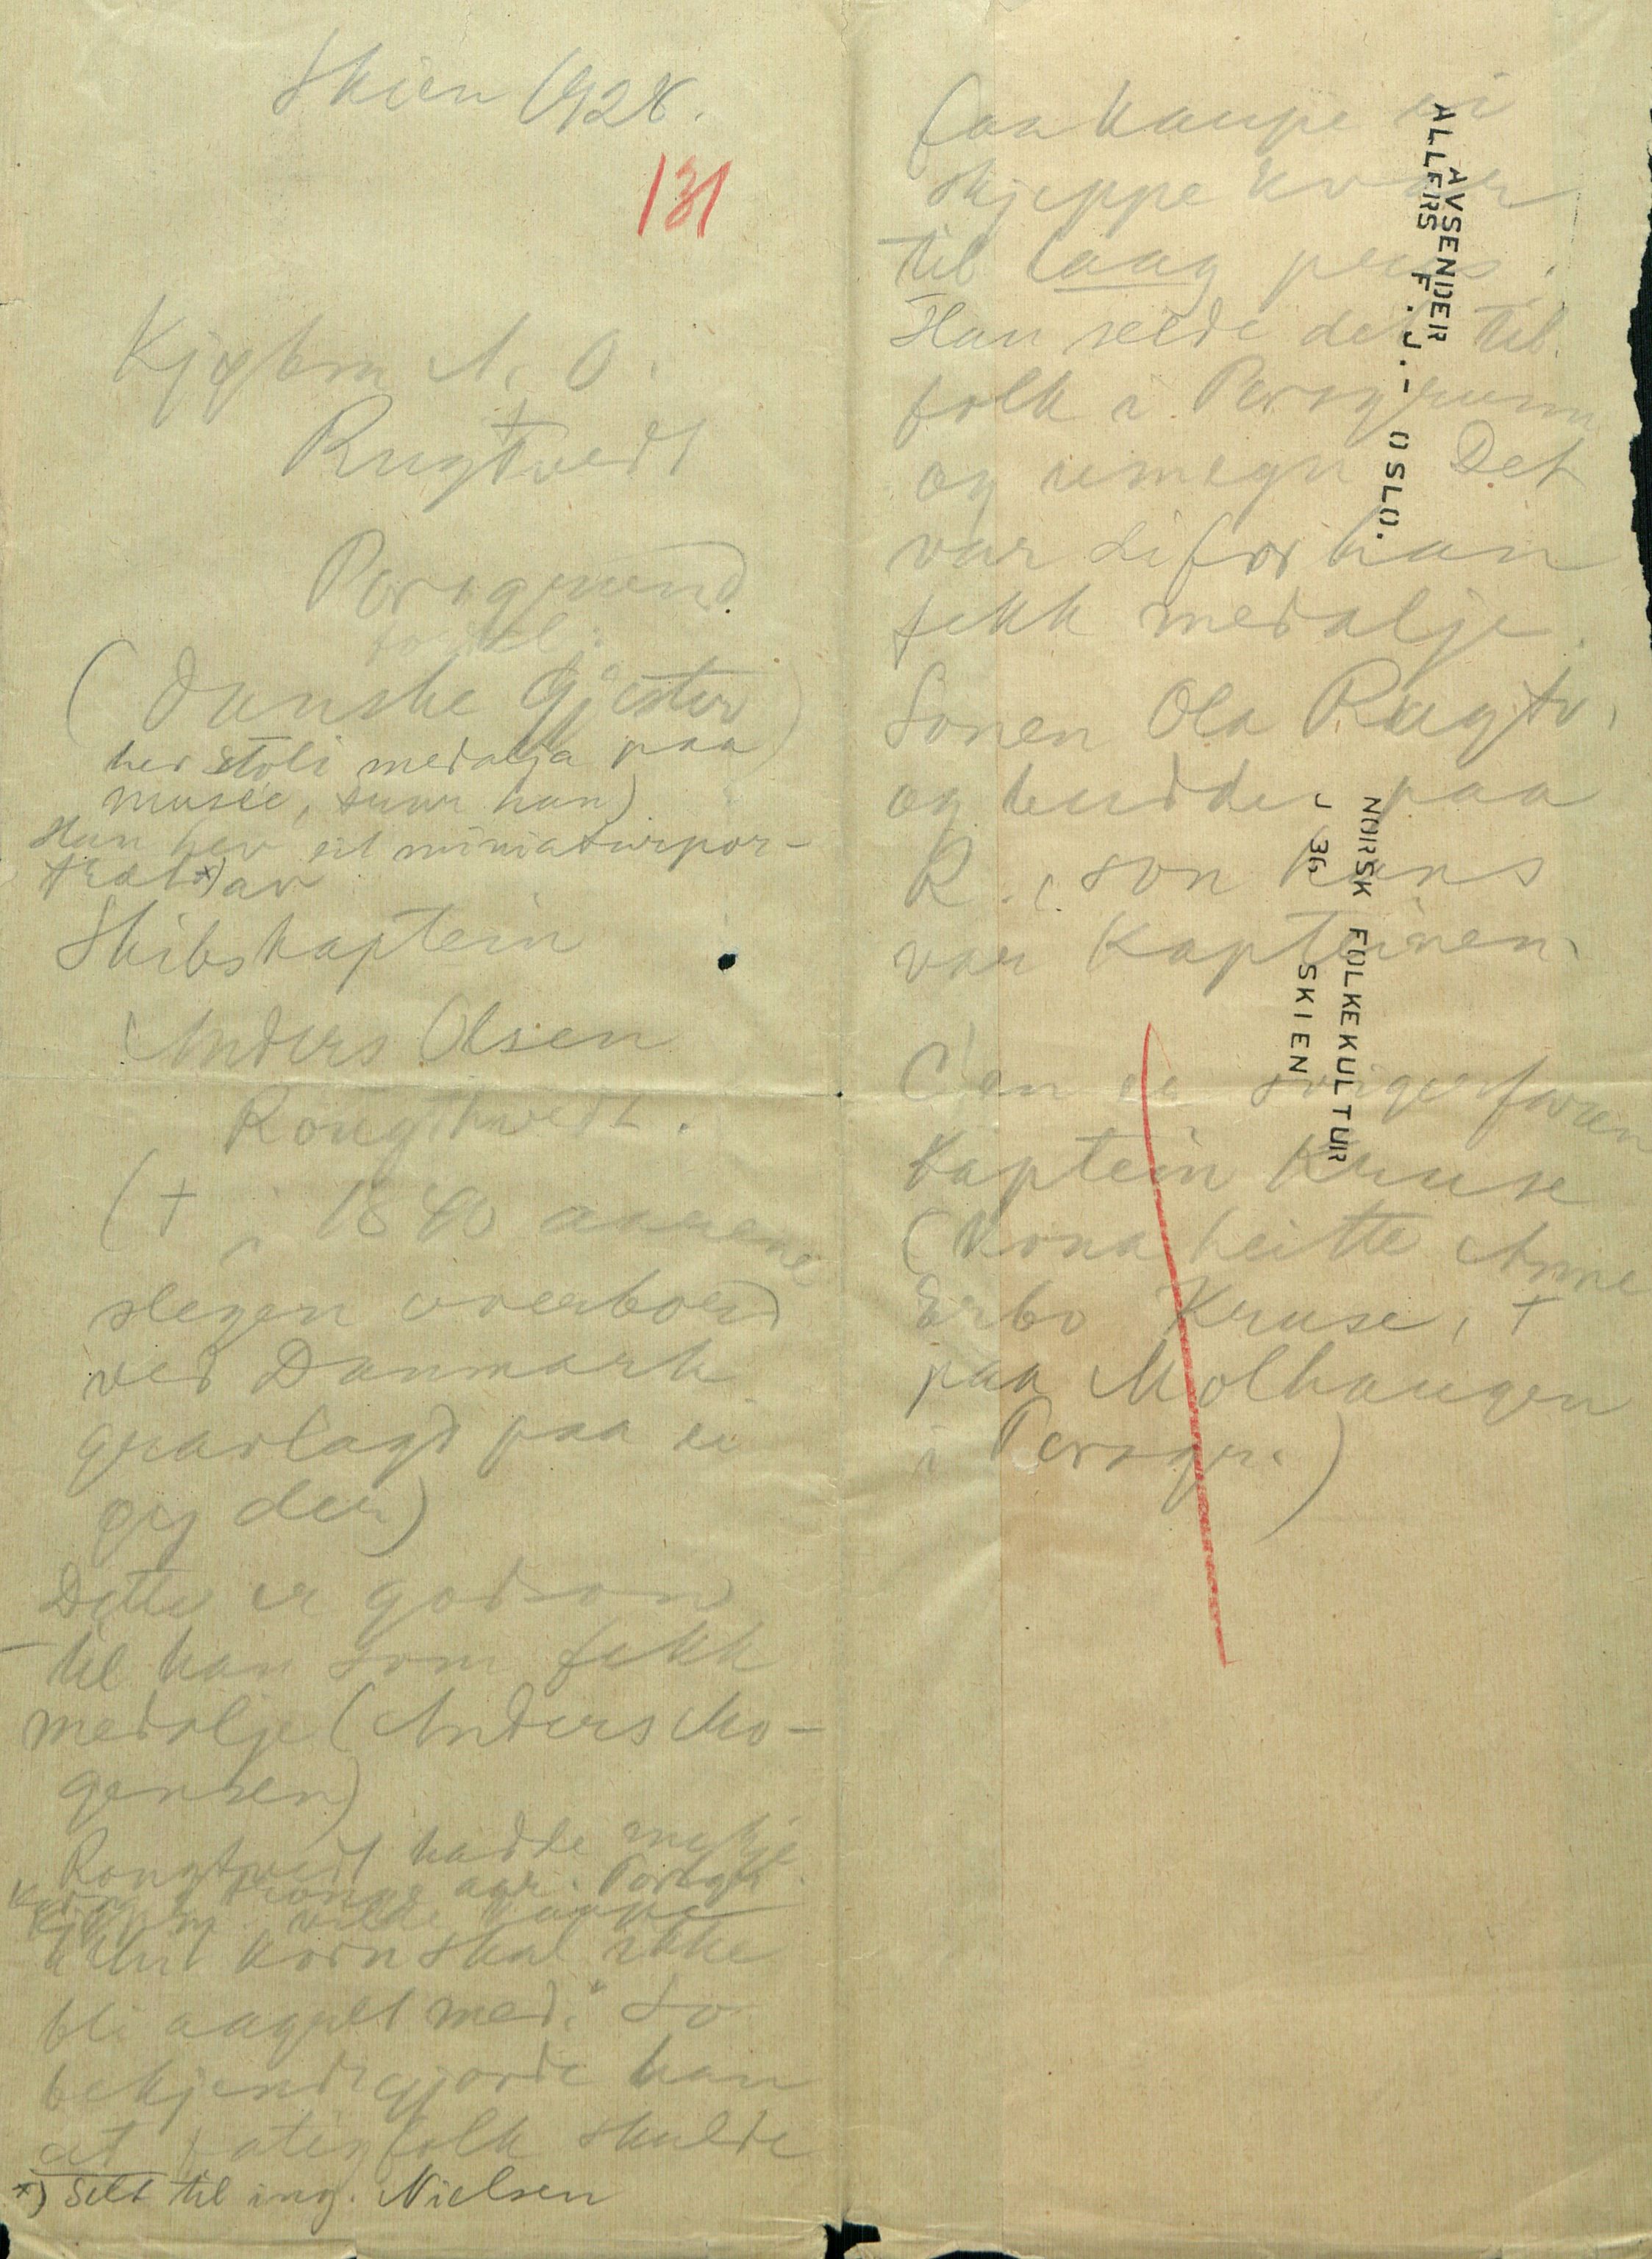 Skien 1928.
131
Kjøbm A. O.
Rugtvedt
Porsgrund
fortel:
(Danske Gjester
hev stoli medalja paa
museé, trur han)
Han hev eit miniaturpor-
træt *) av
Skibskaptein
Anders Olsen
Rougthvedt.
(† i 1840 aarene
slegen overbord
ved Danmark
gravlagd paa ei
øy der)
Dette er godson
til han som fekk
medalje (Anders Mo-
gensen)
Rougtvedt hadde mykje
korn i trange aar. Porsgr.
kjøpm. vilde kaupe
Mit korn skal ikke
bli aagret med." So
bekjendtgjorde han
at fatigfolk skulde
*) Selt til ing. Nielsen
faa kaupe ei
skjeppe kvar
til laag pris.
Han selde det til
folk i Porsgrunn
og umegn Det
var difor han
fekk medalje.
Sonen Ola Rugtv.
og budde paa
R., son hans
var Kapteinen.
Ein svigerfar
Kaptein Kruse
(kona heitte Anne
Kruse, †
paa Molhaugen
i Porsgr.)
AVSENDER
ALLERS F. J. - OSLO.
NORSK FOLKEKULTUR
J 36 SKIEN